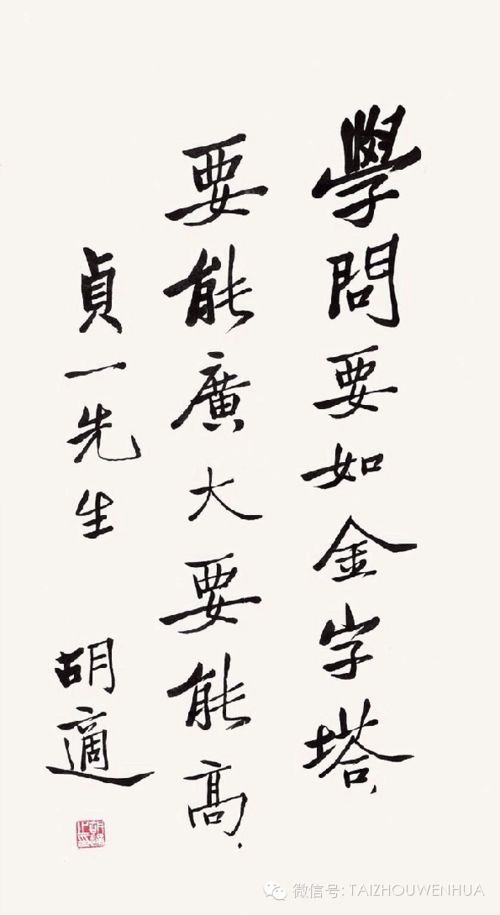 學問要如金字塔.
要能廣大要能高.
貞一先生
胡適
微信号: TAIZHOUWENHUA